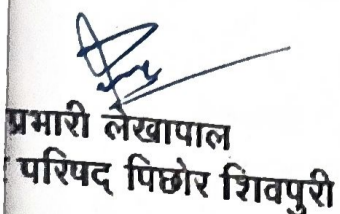 प्रभारी लेखापाल
परिषद् पिछोर शिवपुरी